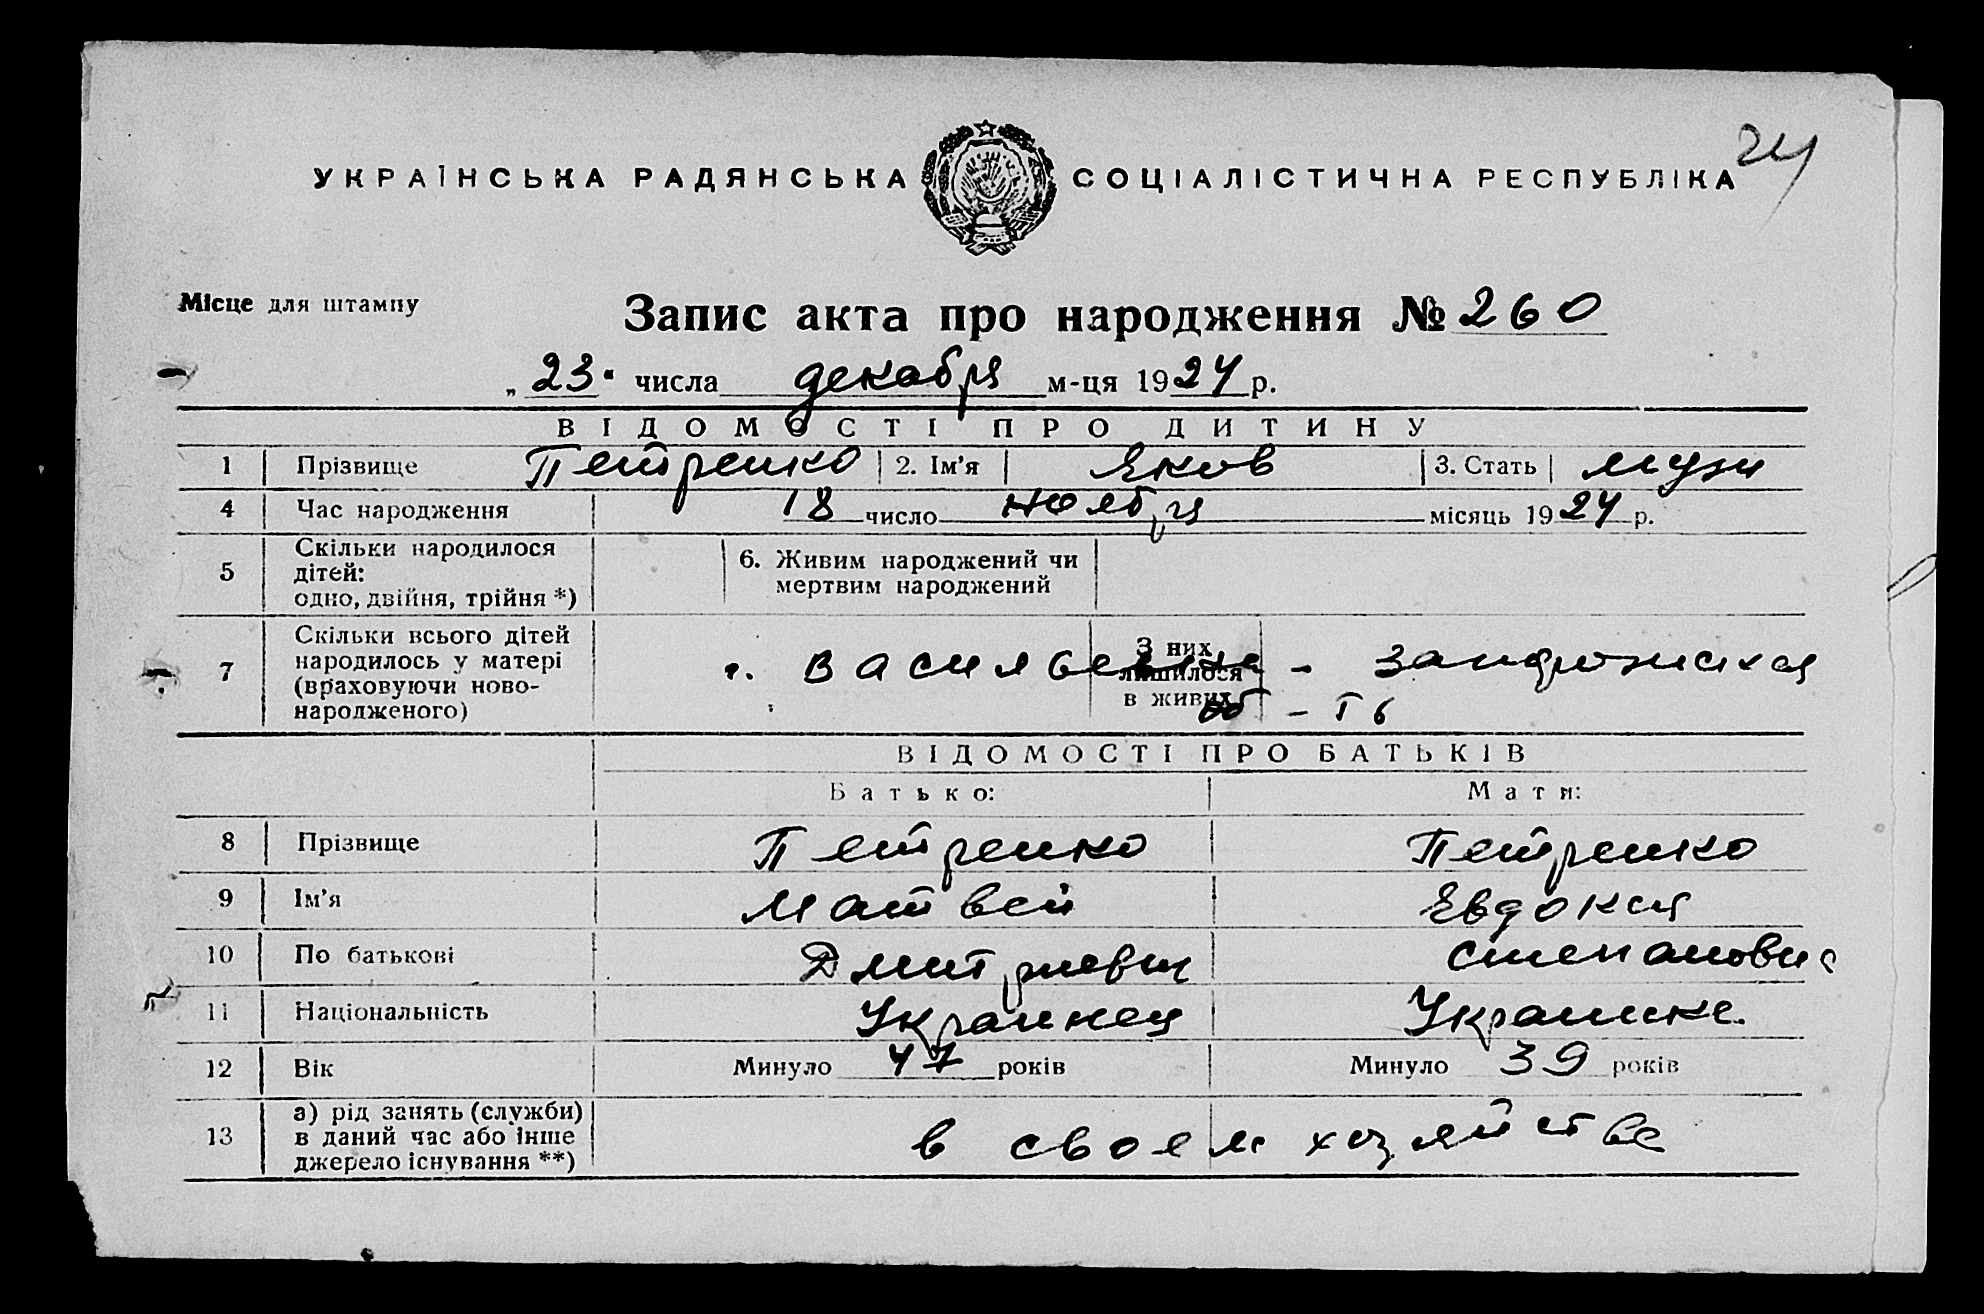 24
УКРАЇНСЬКА РАДЯНСЬКА СОЦІАЛІСТИЧНА РЕСПУБЛІКА
Місце для штампу
Запис акта про народження № 260
„23“ числа декабря м-ця 1924 р.
ВІДОМОСТІ ПРО ДИТИНУ
1 Прізвище Петренко 2. Ім’я Яков 3. Стать муж
4 Час народження 18 число ноября місяць 1924 р.
5 Скільки народилося дітей: одно, двійня, трійня *) 6. Живим народжений чи мертвим народжений
7 Скільки всього дітей народилось у матері (враховуючи новонародженого) З них лишилося в живих
г. Васильевка - Запорожская
об
ВІДОМОСТІ ПРО БАТЬКІВ
Батько: Мати:
8 Прізвище Петренко Петренко
9 Ім’я Матвей Евдокия
10 По батькові Дмитриевич Степановн
11 Національність Украинец Украинка.
12 Вік Минуло 47 років Минуло 39 років
13 а) рід занять (служби) в даний час або інше джерело існування **) в своем хозяйстве